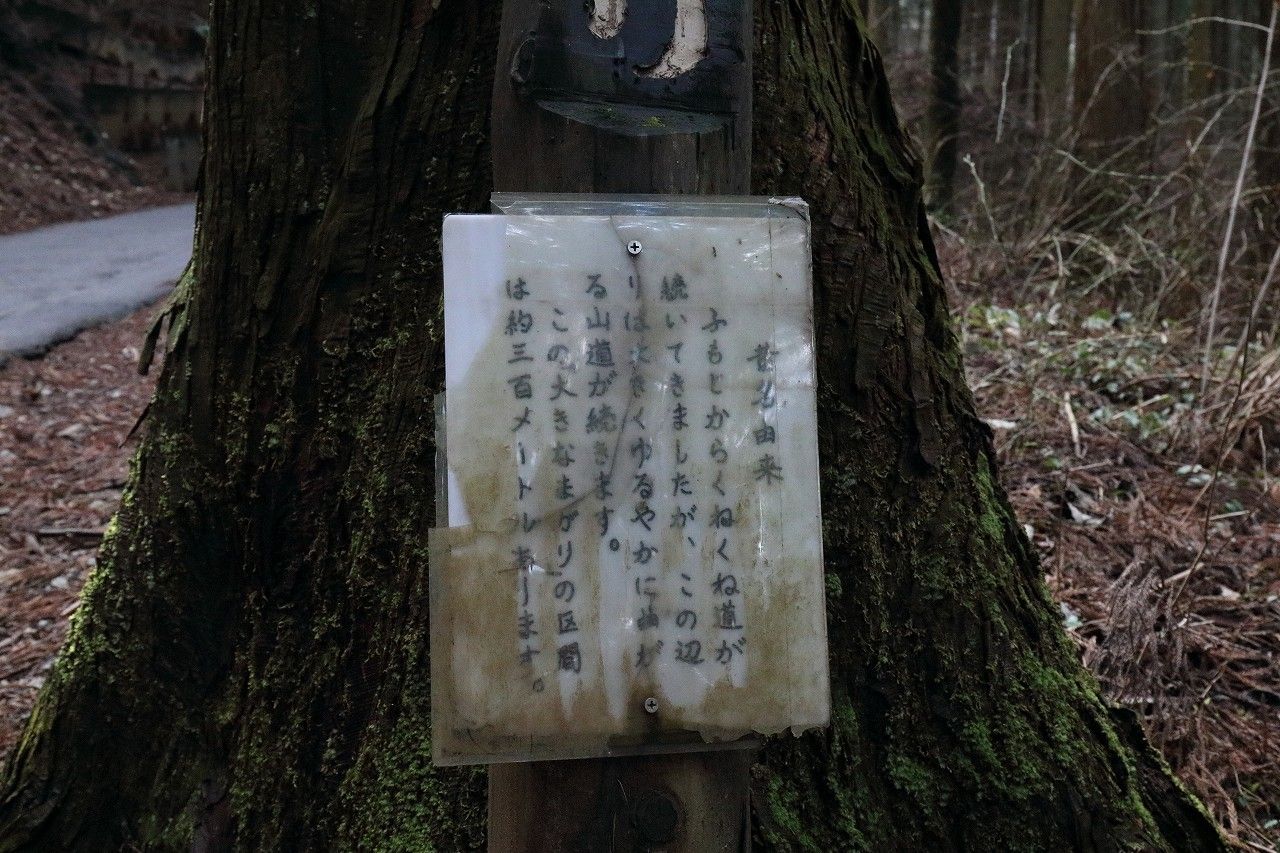 昔名由来
ふもとからくねくね道が
続いてきましたが、この辺
りは大きくゆるやかに曲が
る山道が続きます。
この大きなまがりの区間
は約三百メートル有ります。